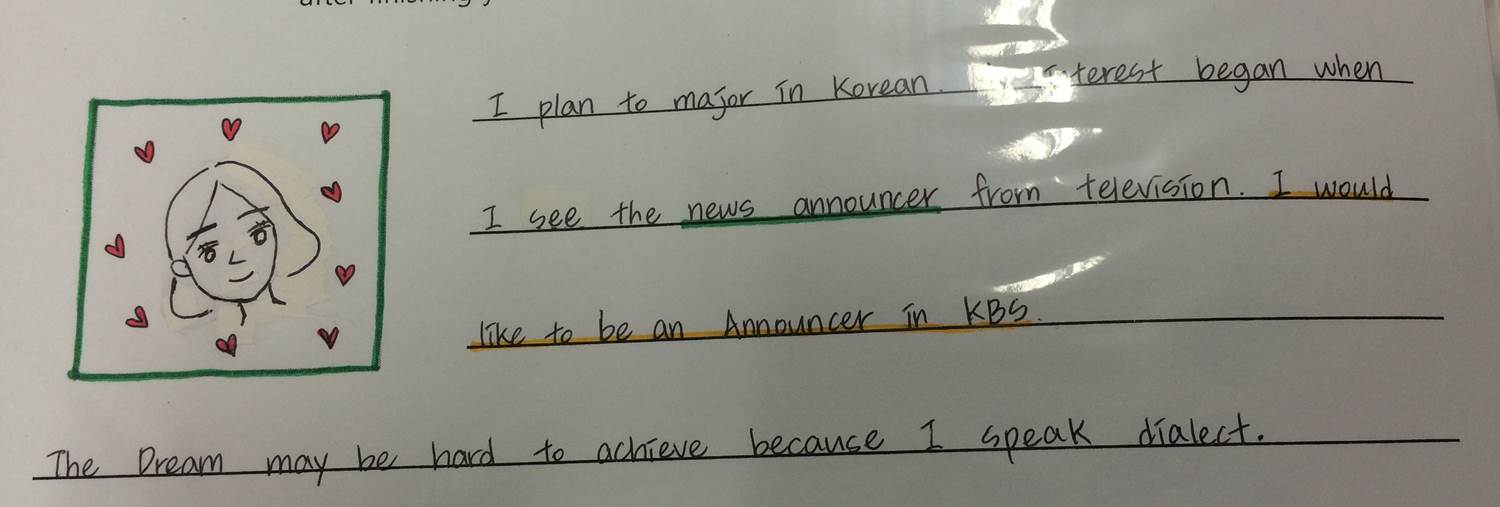 I plan to major in Korean. interest began when
I see the news announcer from television. I would
like to be an Announcer in KBS.
The Dream may be hard to achieve because I speak dialect.